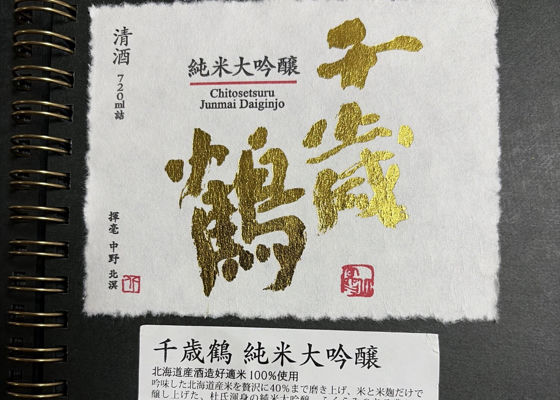 清酒
720ml詰
純米大吟醸
Chitosetsuru
Junmai Daiginjo
千歳
鶴
揮毫 中野 北溟
千歳鶴 純米大吟醸
北海道産酒造好適米100%使用
吟味した北海道産米を贅沢に40%まで磨き上げ、米と米麹だけで
醸し上げた、杜氏渾身の純米大吟醸